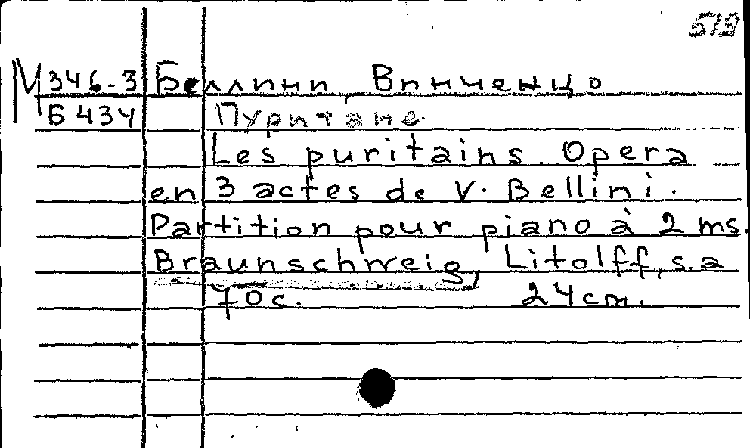 519
М 346-3 Беллини, Винченцо
Б 434 Пуритане
Les puritains. Opera
en 3 actes de V. Bellini.
Partition pour piano à 2 ms.
Braunschweig, Litolff, s.a
70c. 24cm.